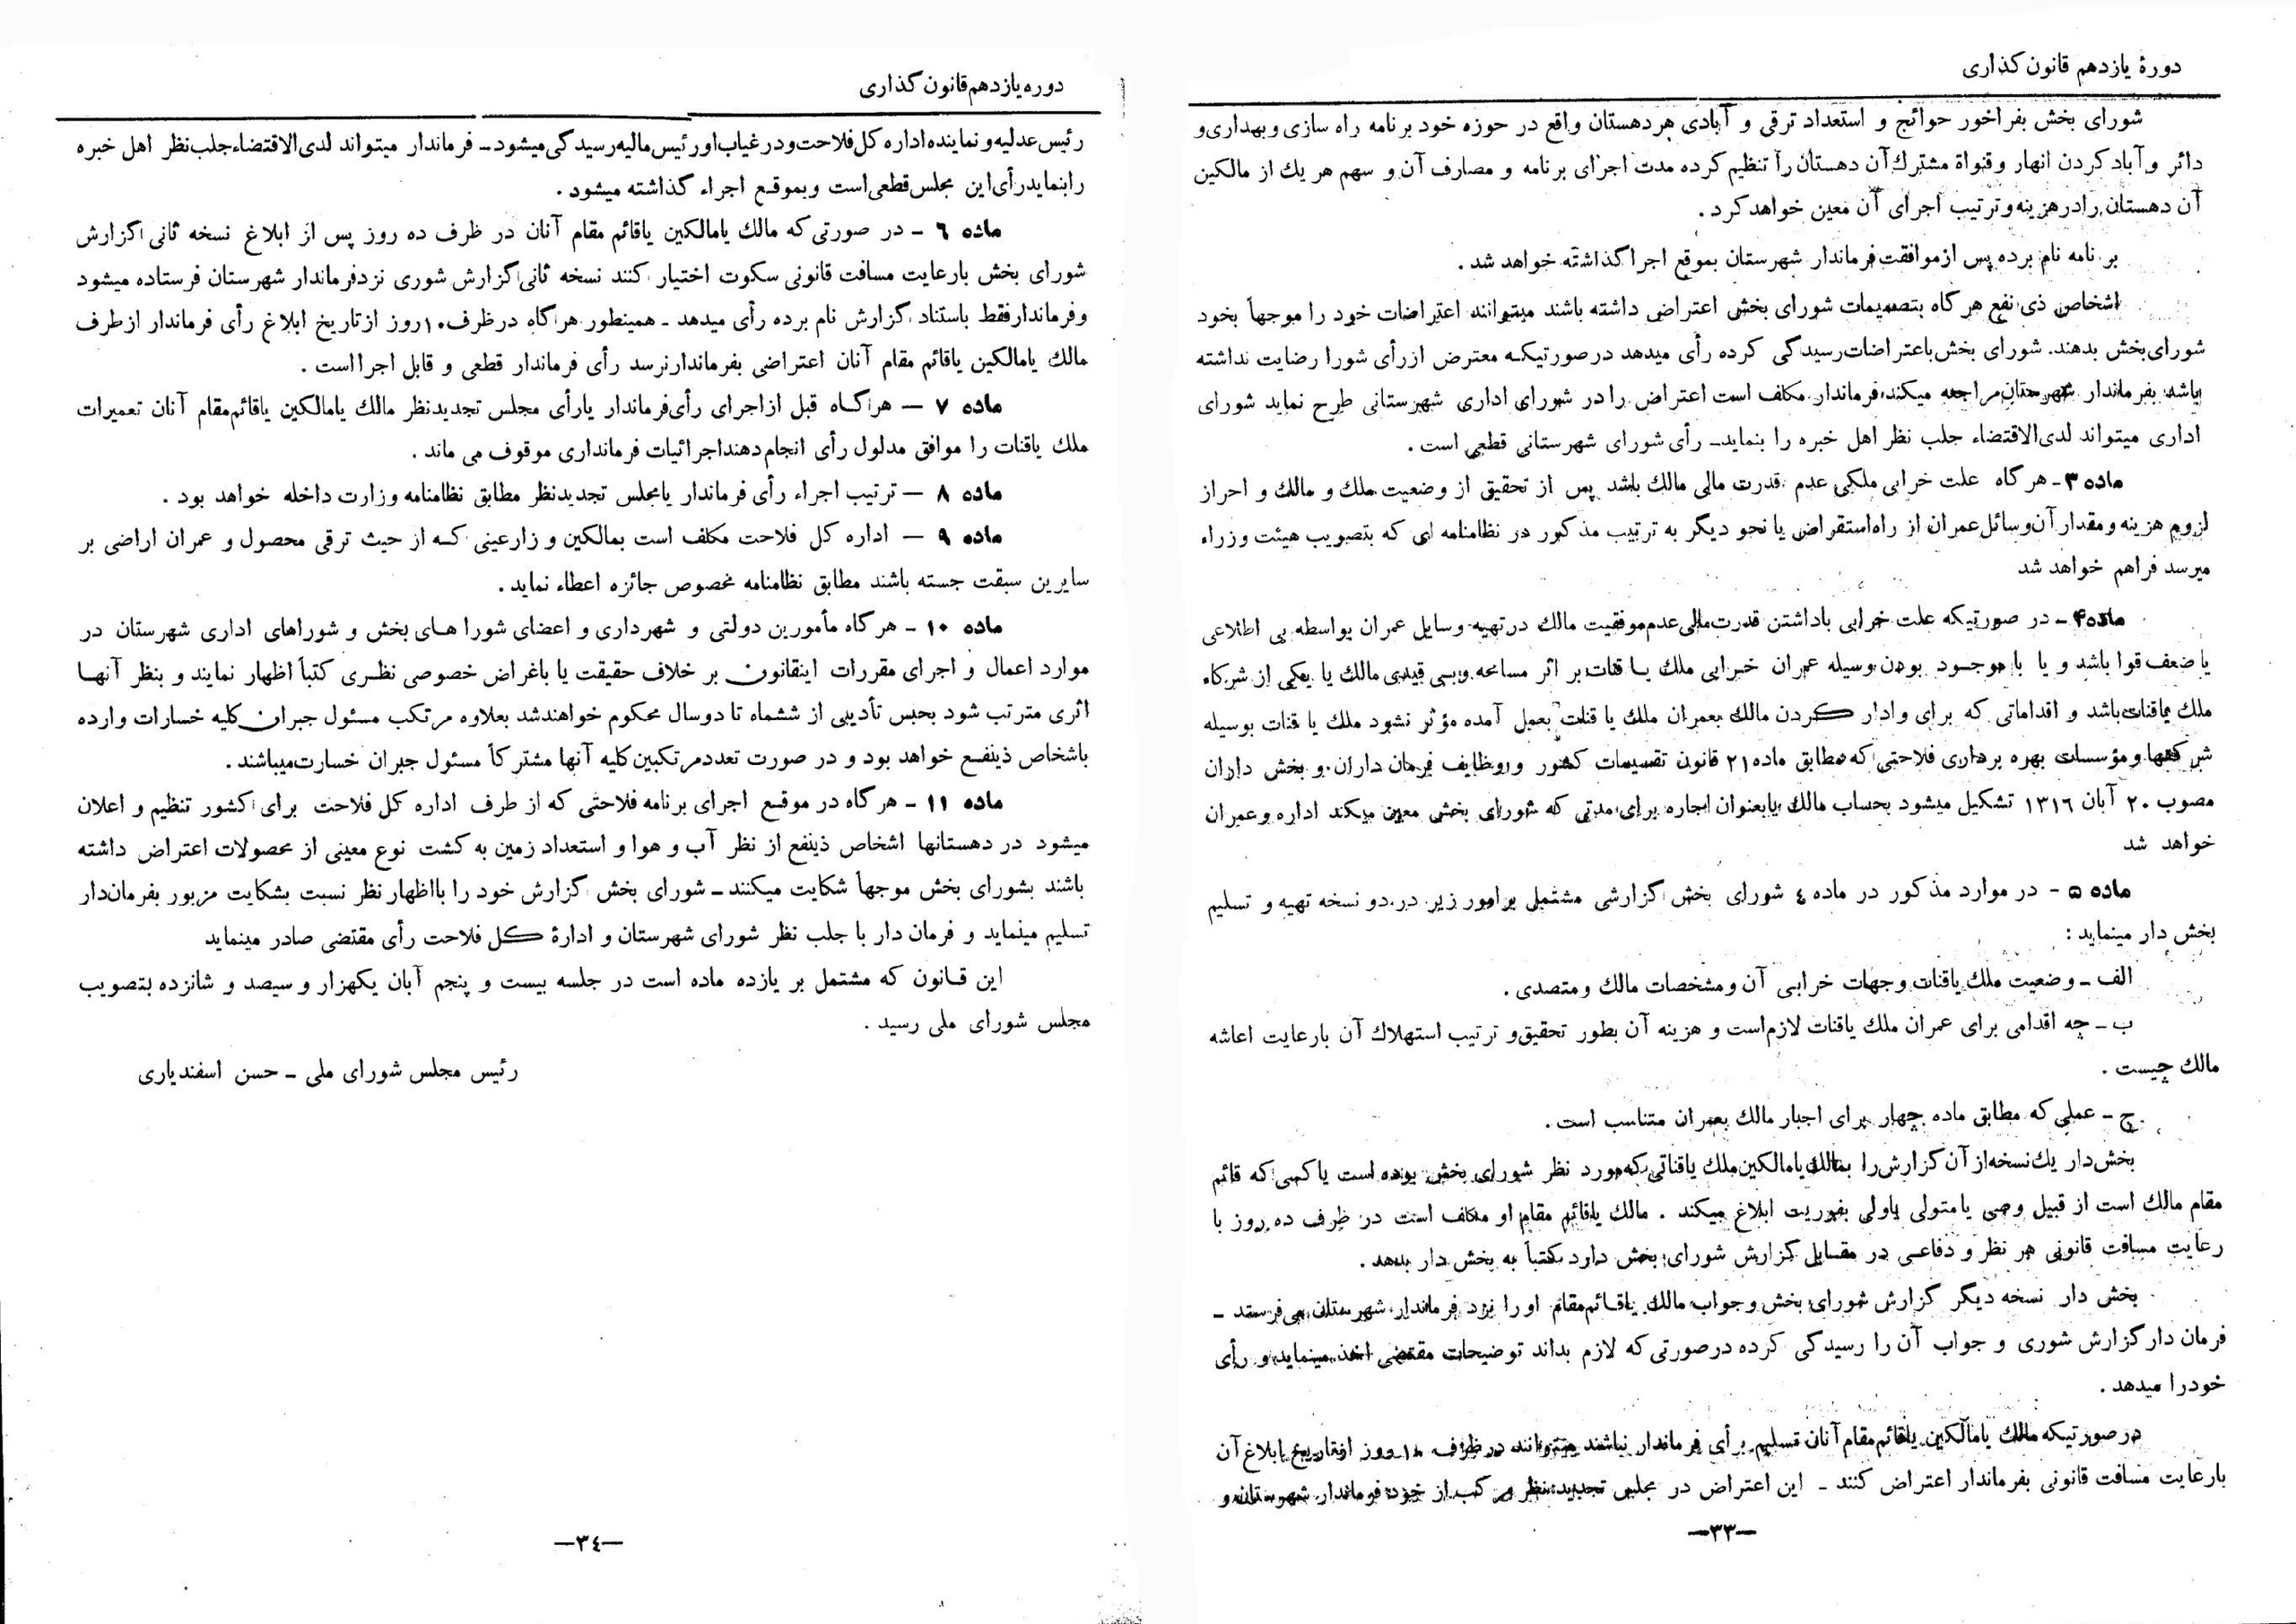 دورهٔ یازدهم قانون‌گذاری
شورای بخش بفراخور حوائج و استعداد ترقی و آبادی هر دهستان واقع در حوزه خود برنامه راه سازی و بهداری و
دائر و آباد کردن انهار و قنواة مشترك آن دهستان را تنظیم کرده مدت اجرای برنامه و مصارف آن و سهم هر یك از مالکین
آن دهستان را در هزینه و ترتیب اجرای آن معین خواهد کرد .
برنامه نام برده پس از موافقت فرماندار شهرستان بموقع اجرا گذاشته خواهد شد .
اشخاص ذی نفع هر گاه بتصمیمات شورای بخش اعتراض داشته باشند میتوانند اعتراضات خود را موجهاً بخود
شورای بخش بدهند. شورای بخش باعتراضات رسیدگی کرده رأی میدهد در صورتیکه معترض از رأی شورا رضایت نداشته
باشد بفرماندار شهرستان مراجعه میکند، فرماندار مکلف است اعتراض را در شورای اداری شهرستانی طرح نماید شورای
اداری میتواند لدی‌الاقتضاء جلب نظر اهل خبره را بنماید ـ رأی شورای شهرستانی قطعی است .
ماده ۳ ـ هر گاه علت خرابی ملکی عدم قدرت مالی مالك باشد پس از تحقیق از وضعیت ملك و مالك و احراز
لزوم هزینه و مقدار آن وسائل عمران از راه استقراض یا نحو دیگر به ترتیب مذکور در نظامنامه ای که بتصویب هیئت وزراء
میرسد فراهم خواهد شد
ماده ۴ ـ در صورتیکه علت خرابی باداشتن قدرت مالی عدم موفقیت مالك در تهیه وسایل عمران بواسطه بی اطلاعی
یا ضعف قوا باشد و یا با موجود بودن وسیله عمران خرابی ملك یا قنات بر اثر مسامحه و بسی قیدی مالك یا یکی از شرکاء
ملك یا قنات باشد و اقداماتی که برای وادار کردن مالك بعمران ملك یا قنات بعمل آمده مؤثر نشود ملك یا قنات بوسیله
شرکتها و مؤسسات بهره برداری فلاحتی که مطابق ماده ۲۱ قانون تقسیمات کشور و وظایف فرمان داران و بخش داران
مصوب ۲۰ آبان ۱۳۱۶ تشکیل میشود بحساب مالك یا بعنوان اجاره برای مدتی که شورای بخش معین میکند اداره و عمران
خواهد شد
ماده ۵ - در موارد مذکور در ماده ٤ شورای بخش گزارشی مشتمل بر امور زیر در دو نسخه تهیه و تسلیم
بخش دار مینماید :
الف ـ وضعیت ملك یا قنات و جهات خرابی آن و مشخصات مالك و متصدی .
ب ـ چه اقدامی برای عمران ملك یا قنات لازم است و هزینه آن بطور تحقیق و ترتیب استهلاك آن بارعایت اعاشه
مالك چیست .
ج ـ عملی که مطابق ماده چهار برای اجبار مالك بعمران متناسب است .
بخش دار یك نسخه از آن گزارش را بمالك یا مالکین ملك یا قناتی که مورد نظر شورای بخش بوده است یا کسی که قائم
مقام مالك است از قبیل وصی یا متولی یا ولی بفوریت ابلاغ میکند . مالك یا قائم مقام او مکلف است در ظرف ده روز با
رعایت مسافت قانونی هر نظر و دفاعی در مقابل گزارش شورای بخش دارد کتباً به بخش دار بدهد .
بخش دار نسخه دیگر گزارش شورای بخش و جواب مالك یا قائم مقام او را نزد فرماندار شهرستان می فرستد ـ
فرمان دار گزارش شوری و جواب آن را رسیدگی کرده در صورتی که لازم بداند توضیحات مقتضی اخذ مینماید و رأی
خود را میدهد .
در صورتیکه مالك یا مالکین یا قائم مقام آنان تسلیم برأی فرماندار نباشند میتوانند در ظرف ۱۰ روز از تاریخ ابلاغ آن
بارعایت مسافت قانونی بفرماندار اعتراض کنند ـ این اعتراض در مجلس تجدید نظر مرکب از خود فرماندار شهرستان و
—۳۳—
دوره یازدهم قانون گذاری
رئیس عدلیه و نماینده اداره کل فلاحت و در غیاب او رئیس مالیه رسیدگی میشود ـ فرماندار میتواند لدی الاقتضاء جلب نظر اهل خبره
را بنماید رأی این مجلس قطعی است و بموقع اجراء گذاشته میشود .
ماده ٦ ـ در صورتی که مالك یا مالکین یا قائم مقام آنان در ظرف ده روز پس از ابلاغ نسخه ثانی گزارش
شورای بخش بارعایت مسافت قانونی سکوت اختیار کنند نسخه ثانی گزارش شوری نزد فرماندار شهرستان فرستاده میشود
و فرماندار فقط باستناد گزارش نام برده رأی میدهد ـ همینطور هر گاه در ظرف ۱۰ روز از تاریخ ابلاغ رأی فرماندار از طرف
مالك یا مالکین یا قائم مقام آنان اعتراضی بفرماندار نرسد رأی فرماندار قطعی و قابل اجرا است .
ماده ۷ — هر گاه قبل از اجرای رأی فرماندار یا رأی مجلس تجدید نظر مالك یا مالکین یا قائم مقام آنان تعمیرات
ملك یا قنات را موافق مدلول رأی انجام دهند اجرائیات فرمانداری موقوف می ماند .
ماده ۸ — ترتیب اجراء رأی فرماندار یا مجلس تجدید نظر مطابق نظامنامه وزارت داخله خواهد بود .
ماده ۹ — اداره کل فلاحت مکلف است بمالکین و زارعینی که از حیث ترقی محصول و عمران اراضی بر
سایرین سبقت جسته باشند مطابق نظامنامه مخصوص جائزه اعطاء نماید .
ماده ۱۰ ـ هر گاه مأمورین دولتی و شهرداری و اعضای شورا های بخش و شوراهای اداری شهرستان در
موارد اعمال و اجرای مقررات اینقانون بر خلاف حقیقت یا باغراض خصوصی نظری کتباً اظهار نمایند و بنظر آنها
اثری مترتب شود بحبس تأدیبی از ششماه تا دو سال محکوم خواهند شد بعلاوه مرتکب مسئول جبران کلیه خسارات وارده
باشخاص ذینفع خواهد بود و در صورت تعدد مرتکبین کلیه آنها مشترکاً مسئول جبران خسارت میباشند .
ماده ۱۱ ـ هر گاه در موقع اجرای برنامه فلاحتی که از طرف اداره کل فلاحت برای کشور تنظیم و اعلان
میشود در دهستانها اشخاص ذینفع از نظر آب و هوا و استعداد زمین به کشت نوع معینی از محصولات اعتراض داشته
باشند بشورای بخش موجهاً شکایت میکنند ـ شورای بخش گزارش خود را با اظهار نظر نسبت بشکایت مزبور بفرمان‌دار
تسلیم مینماید و فرمان دار با جلب نظر شورای شهرستان و ادارهٔ کل فلاحت رأی مقتضی صادر مینماید
این قانون که مشتمل بر یازده ماده است در جلسه بیست و پنجم آبان یکهزار و سیصد و شانزده بتصویب
مجلس شورای ملی رسید .
رئیس مجلس شورای ملی ـ حسن اسفندیاری
—۳٤—